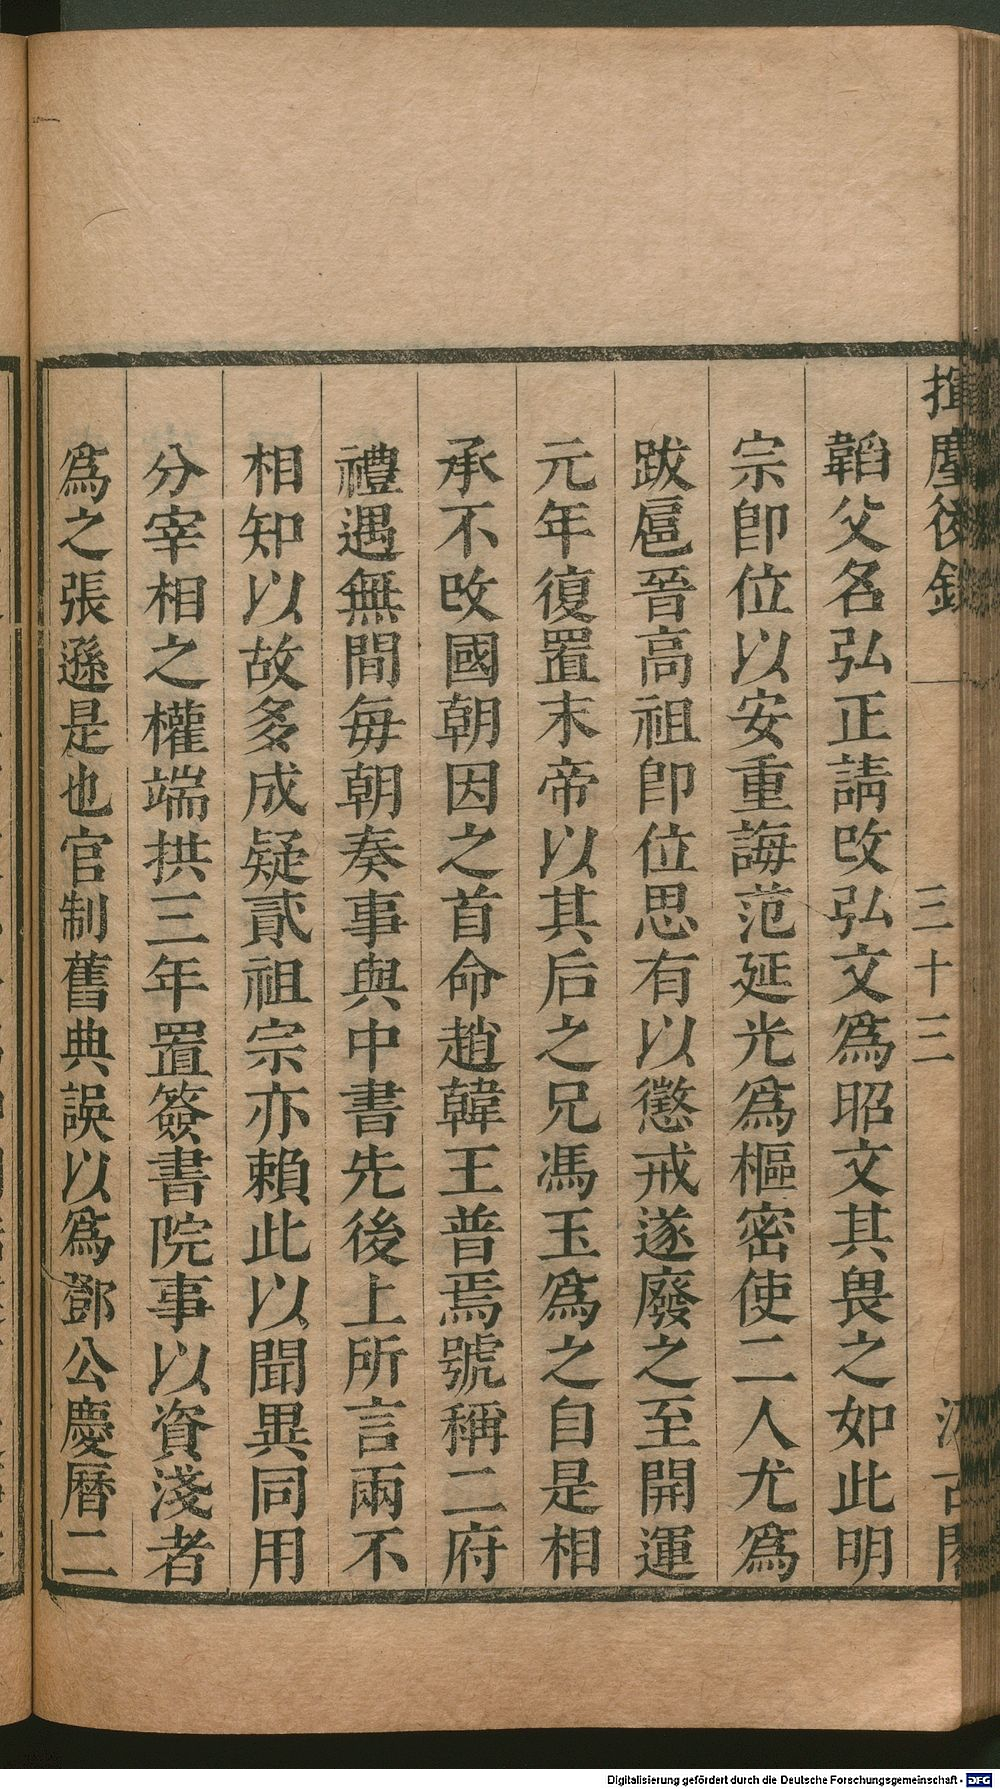 揮麈後錄
三十三
汲古閣
韜父名弘正請改弘文爲昭文其畏之如此明
宗即位以安重誨范延光爲樞密使二人尤爲
跋扈晉高祖即位思有以懲戒遂廢之至開運
元年復置末帝以其后之兄馮玉爲之自是相
承不改國朝因之首命趙韓王普焉號稱二府
禮遇無間每朝奏事與中書先後上所言兩不
相知以故多成疑貳祖宗亦賴此以聞異同用
分宰相之權端拱三年置簽書院事以資淺者
爲之張遜是也官制舊典誤以爲鄧公慶曆二
Digitalisierung gefördert durch die Deutsche Forschungsgemeinschaft - DFG